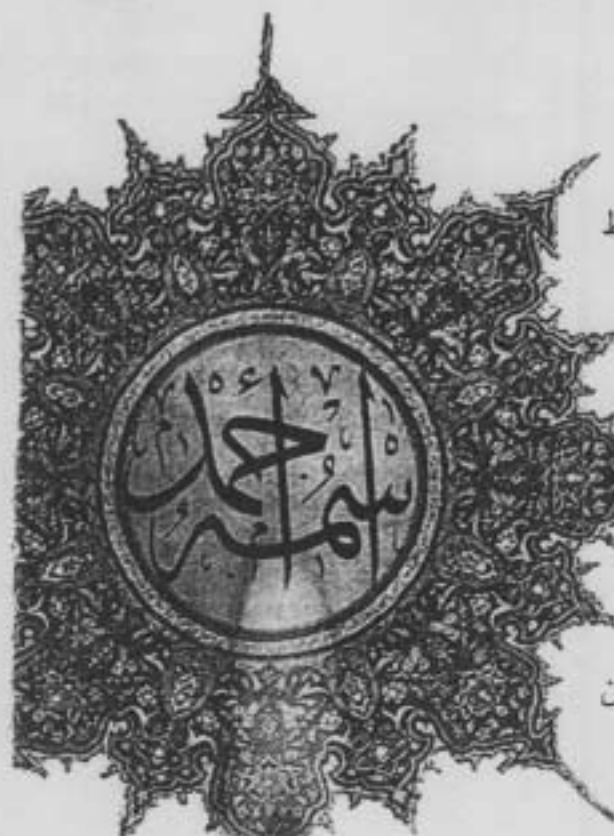 اسمه احمد